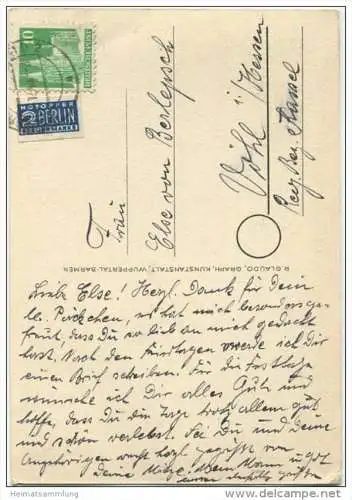 10
DEUTSCHE POST
NOTOPFER
2 BERLIN
STEUERMARKE
Frau
Else von Berlepsch
Vöhl i/Hessen
Reg. Bez. Kassel
R. GLAUDO, GRAPH. KUNSTANSTALT, WUPPERTAL-BARMEN
Liebe Else! Herzl. Dank für Dein
lb. Päckchen, es hat mich besonders ge-
freut, dass Du so lieb an mich gedacht
hast. Nach den Feiertagen werde ich Dir
einen Brief schreiben. Für die Festtage
wünsche ich Dir alles Gute und
hoffe, dass Du die Tage trotz allem gut
und schön verlebst. Sei Du und Deine
Angehörigen recht herzl. gegrüßt von
Deine Mein Mann u. Gat
grüßen
Heimatsammlung
www.ansichtskarten-lexikon.de